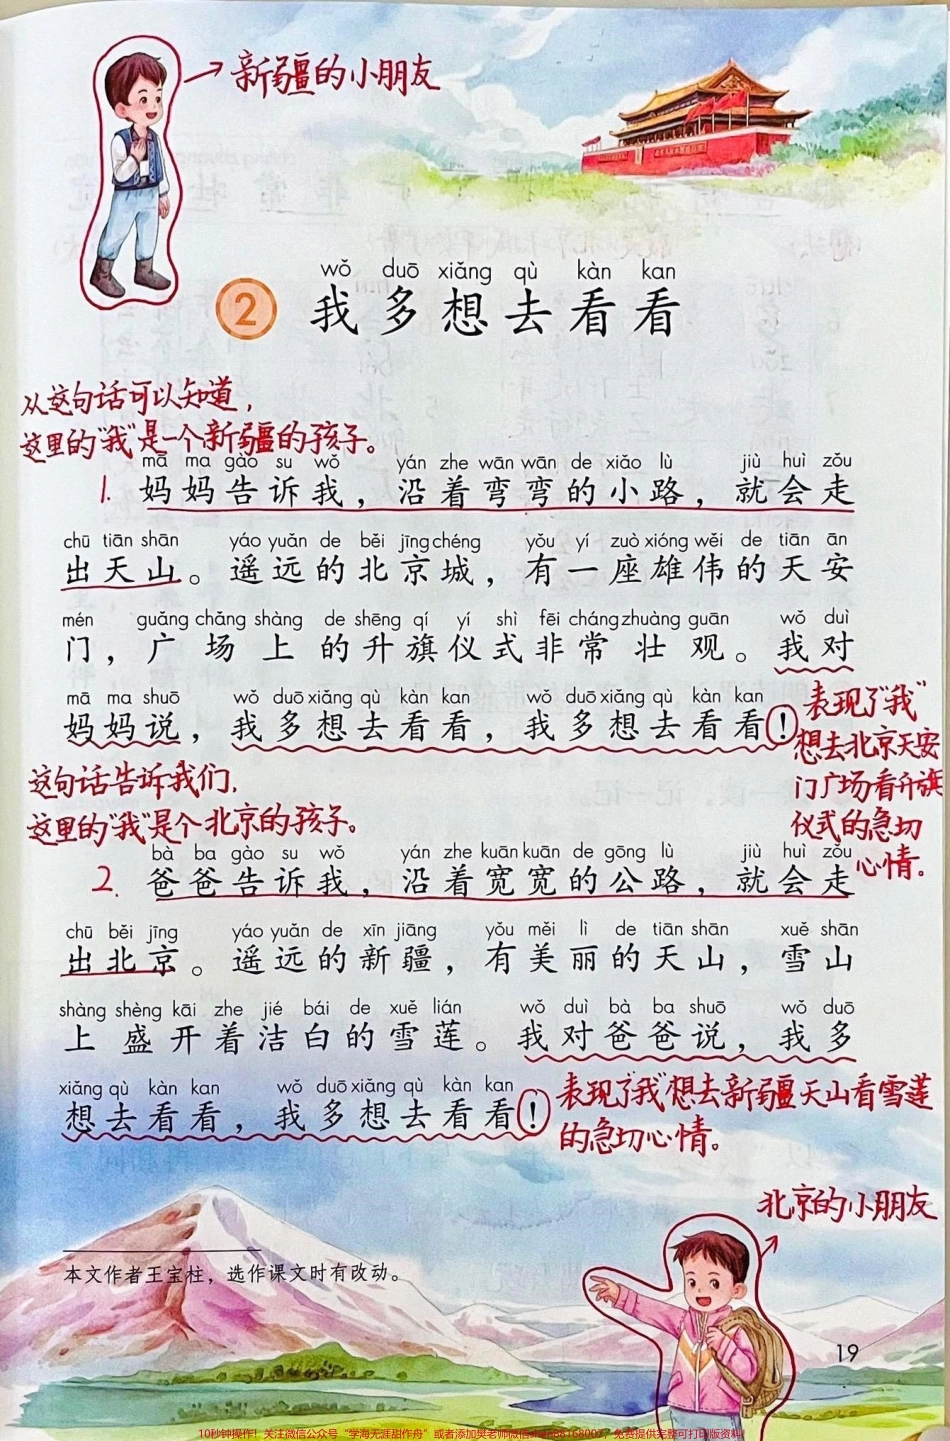 新疆的小朋友
wǒ duō xiǎng qù kàn kan
2 我多想去看看
从这句话可以知道，
这里的“我”是一个新疆的孩子。
mā ma gào su wǒ yán zhe wān wān de xiǎo lù jiù huì zǒu
1. 妈妈告诉我，沿着弯弯的小路，就会走
chū tiān shān yáo yuǎn de běi jīng chéng yǒu yí zuò xióng wěi de tiān ān
出天山。遥远的北京城，有一座雄伟的天安
mén guǎng chǎng shàng de shēng qí yí shì fēi cháng zhuàng guān wǒ duì
门，广场上的升旗仪式非常壮观。我对
mā ma shuō wǒ duō xiǎng qù kàn kan wǒ duō xiǎng qù kàn kan
妈妈说，我多想去看看，我多想去看看！
表现了“我”
想去北京天安
门广场看升旗
仪式的急切
心情。
这句话告诉我们，
这里的“我”是个北京的孩子。
bà ba gào su wǒ yán zhe kuān kuān de gōng lù jiù huì zǒu
2. 爸爸告诉我，沿着宽宽的公路，就会走
chū běi jīng yáo yuǎn de xīn jiāng yǒu měi lì de tiān shān xuě shān
出北京。遥远的新疆，有美丽的天山，雪山
shàng shèng kāi zhe jié bái de xuě lián wǒ duì bà ba shuō wǒ duō
上盛开着洁白的雪莲。我对爸爸说，我多
xiǎng qù kàn kan wǒ duō xiǎng qù kàn kan
想去看看，我多想去看看！
表现了“我”想去新疆天山看雪莲
的急切心情。
北京的小朋友
本文作者王宝柱，选作课文时有改动。
19
10秒钟操作！关注微信公众号“学海无涯甜作舟”或者添加樊老师微信
免费提供完整可打印版资料！